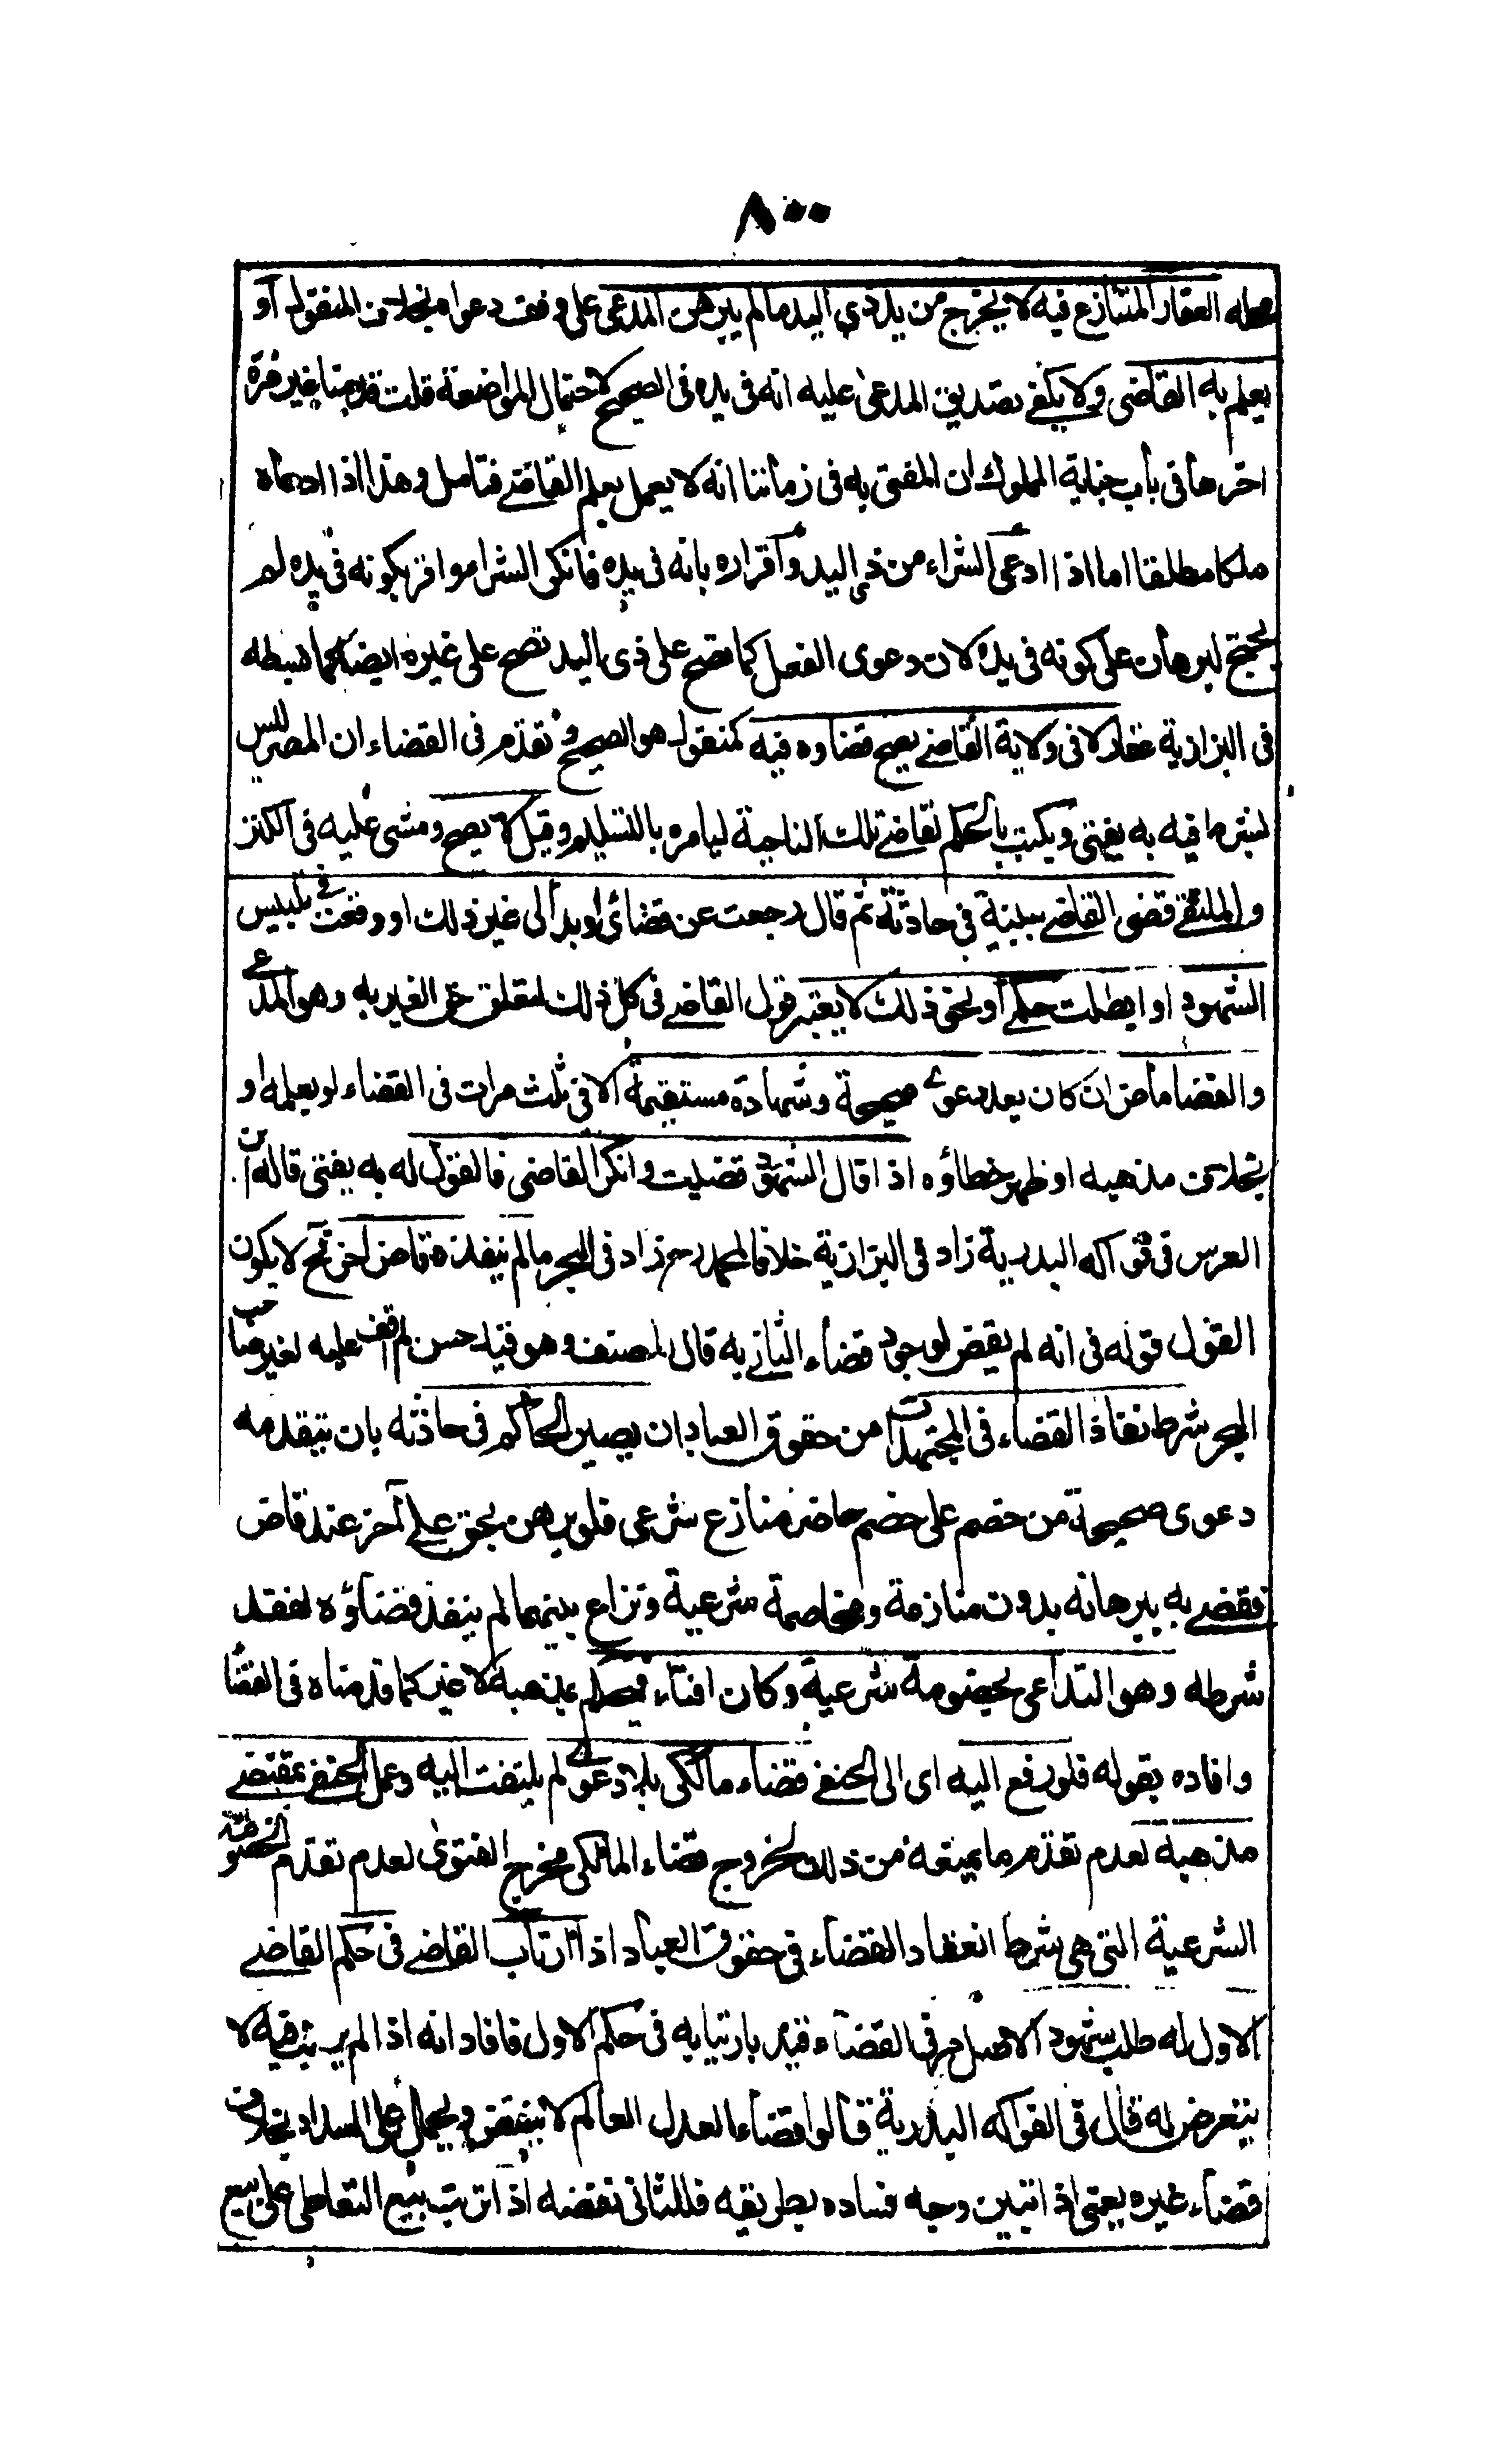 ٨٠٠
العقار المتنازع فيه لا يخرج من يد ذي اليد مالم يبرهن المدعى على وفق دعواه بخلاف المنقول او
يعلم به القاضى ولا يكفے تصديق المدعى عليه انه فى يده فى الصحيح لاحتمال المواضعة قلت قدمنا غير مرة
اخرها فى باب جناية المملوك ان المفتى به فى زماننا انه لا يعمل بعلم القاضے فتامل وهذا اذا ادعاه
ملكا مطلقا اما اذا ادعى الشراء من ذى اليد واقراره بانه فى يده فانكر الشراء واقر بكونه فى يده لم
يحتج لبرهان على كونه فى يده لان دعوى الفعل كما تصح على ذى اليد تصح على غيره ايضا كما بسطه
فى البزازية عقار لا فى ولاية القاضے يصح قضاوه فيه كمنقول هو الصحيح وتقدم فى القضاء ان المصر ليس
بشرط فيه به يفتى ويكتب بالحكم لقاضے تلك الناحية ليامره بالتسليم وقيل لا يصح ومشى عليه فى الكنز
والملتقے قضى القاضے ببينة فى حادثة ثم قال رجعت عن قضائى او بدا لى غير ذلك او وقعت فے تلبيس
الشهود او ابطلت حكمے او نحو ذلك لا يعتبر قول القاضے فى كل ذلك لتعلق حق الغير به وهو المدعے
والقضا ماض ان كان بعد دعوے صحيحة وشهادة مستقيمة الا فى ثلث مرات فى القضاء لو بعلمه او
بخلاف مذهبه او ظهر خطاؤه اذا قال الشهود قضيت وانكر القاضى فالقول له به يفتى قاله ابن
الغرس فى فواكه البدرية زاد فى البزازية خلافا لمحمد رح زاد فى البحر مالم ينفذه قاض اخر تح لا يكون
القول قوله فى انه لم يقض لوجود قضاء الثانے به قال المصنف وهو قيد حسن لم اقف عليه لغير صاحب
البحر شرط نفاذ القضاء فى المجتهدات من حقوق العباد ان يصير الحاكم فى حادثه بان يتقدمه
دعوى صحيحة من خصم على خصم حاضر منازع شرعى فلو برهن بحق علے آخر عند قاض
فقضے به ببرهانه بدون منازعة ومخاصمة شرعية وتنزاع بينهما لم ينفذ قضاؤه لفقد
شرطه وهو التداعى بخصومة شرعية وكان افتاء فيحكم بمذهبه لا غير كما قدمناه فى القضا
وافاده بقوله فلو رفع اليه اى الى الحنفے قضاء مالكى بلا دعوے لم يلتفت اليه وعمل الحنفے بمقتضے
مذهبه لعدم تقدم ما يمنعه من ذلك لخروج قضاء المالكى مخرج الفتوى لعدم تقدم الخصومة
الشرعية التى هى شرط انعقاد القضاء فى حقوق العباد اذا ارتاب القاضے فى حكم القاضے
الاول له طلب شهود الاصل مر فى القضاء قيد بارتيابه فى حكم الاول فافاد انه اذا لم يرتب فيه لا
يتعرض له قال فى الفواكه البدرية قالوا قضاء العدل العالم لا ينقض ويحمل على السداد بخلاف
قضاء غيره يعنى اذا تبين وجه فساده بطريقه فللثانى نقضه اذا ترتب بيع التعاطى على بيع